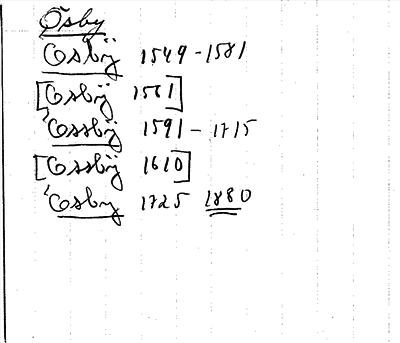 Ösby
Osbÿ 1549-1581
[Osbÿ 1561]
Ossbÿ 1591-1715
[Ossbÿ 1610]
Osby 1725 1880